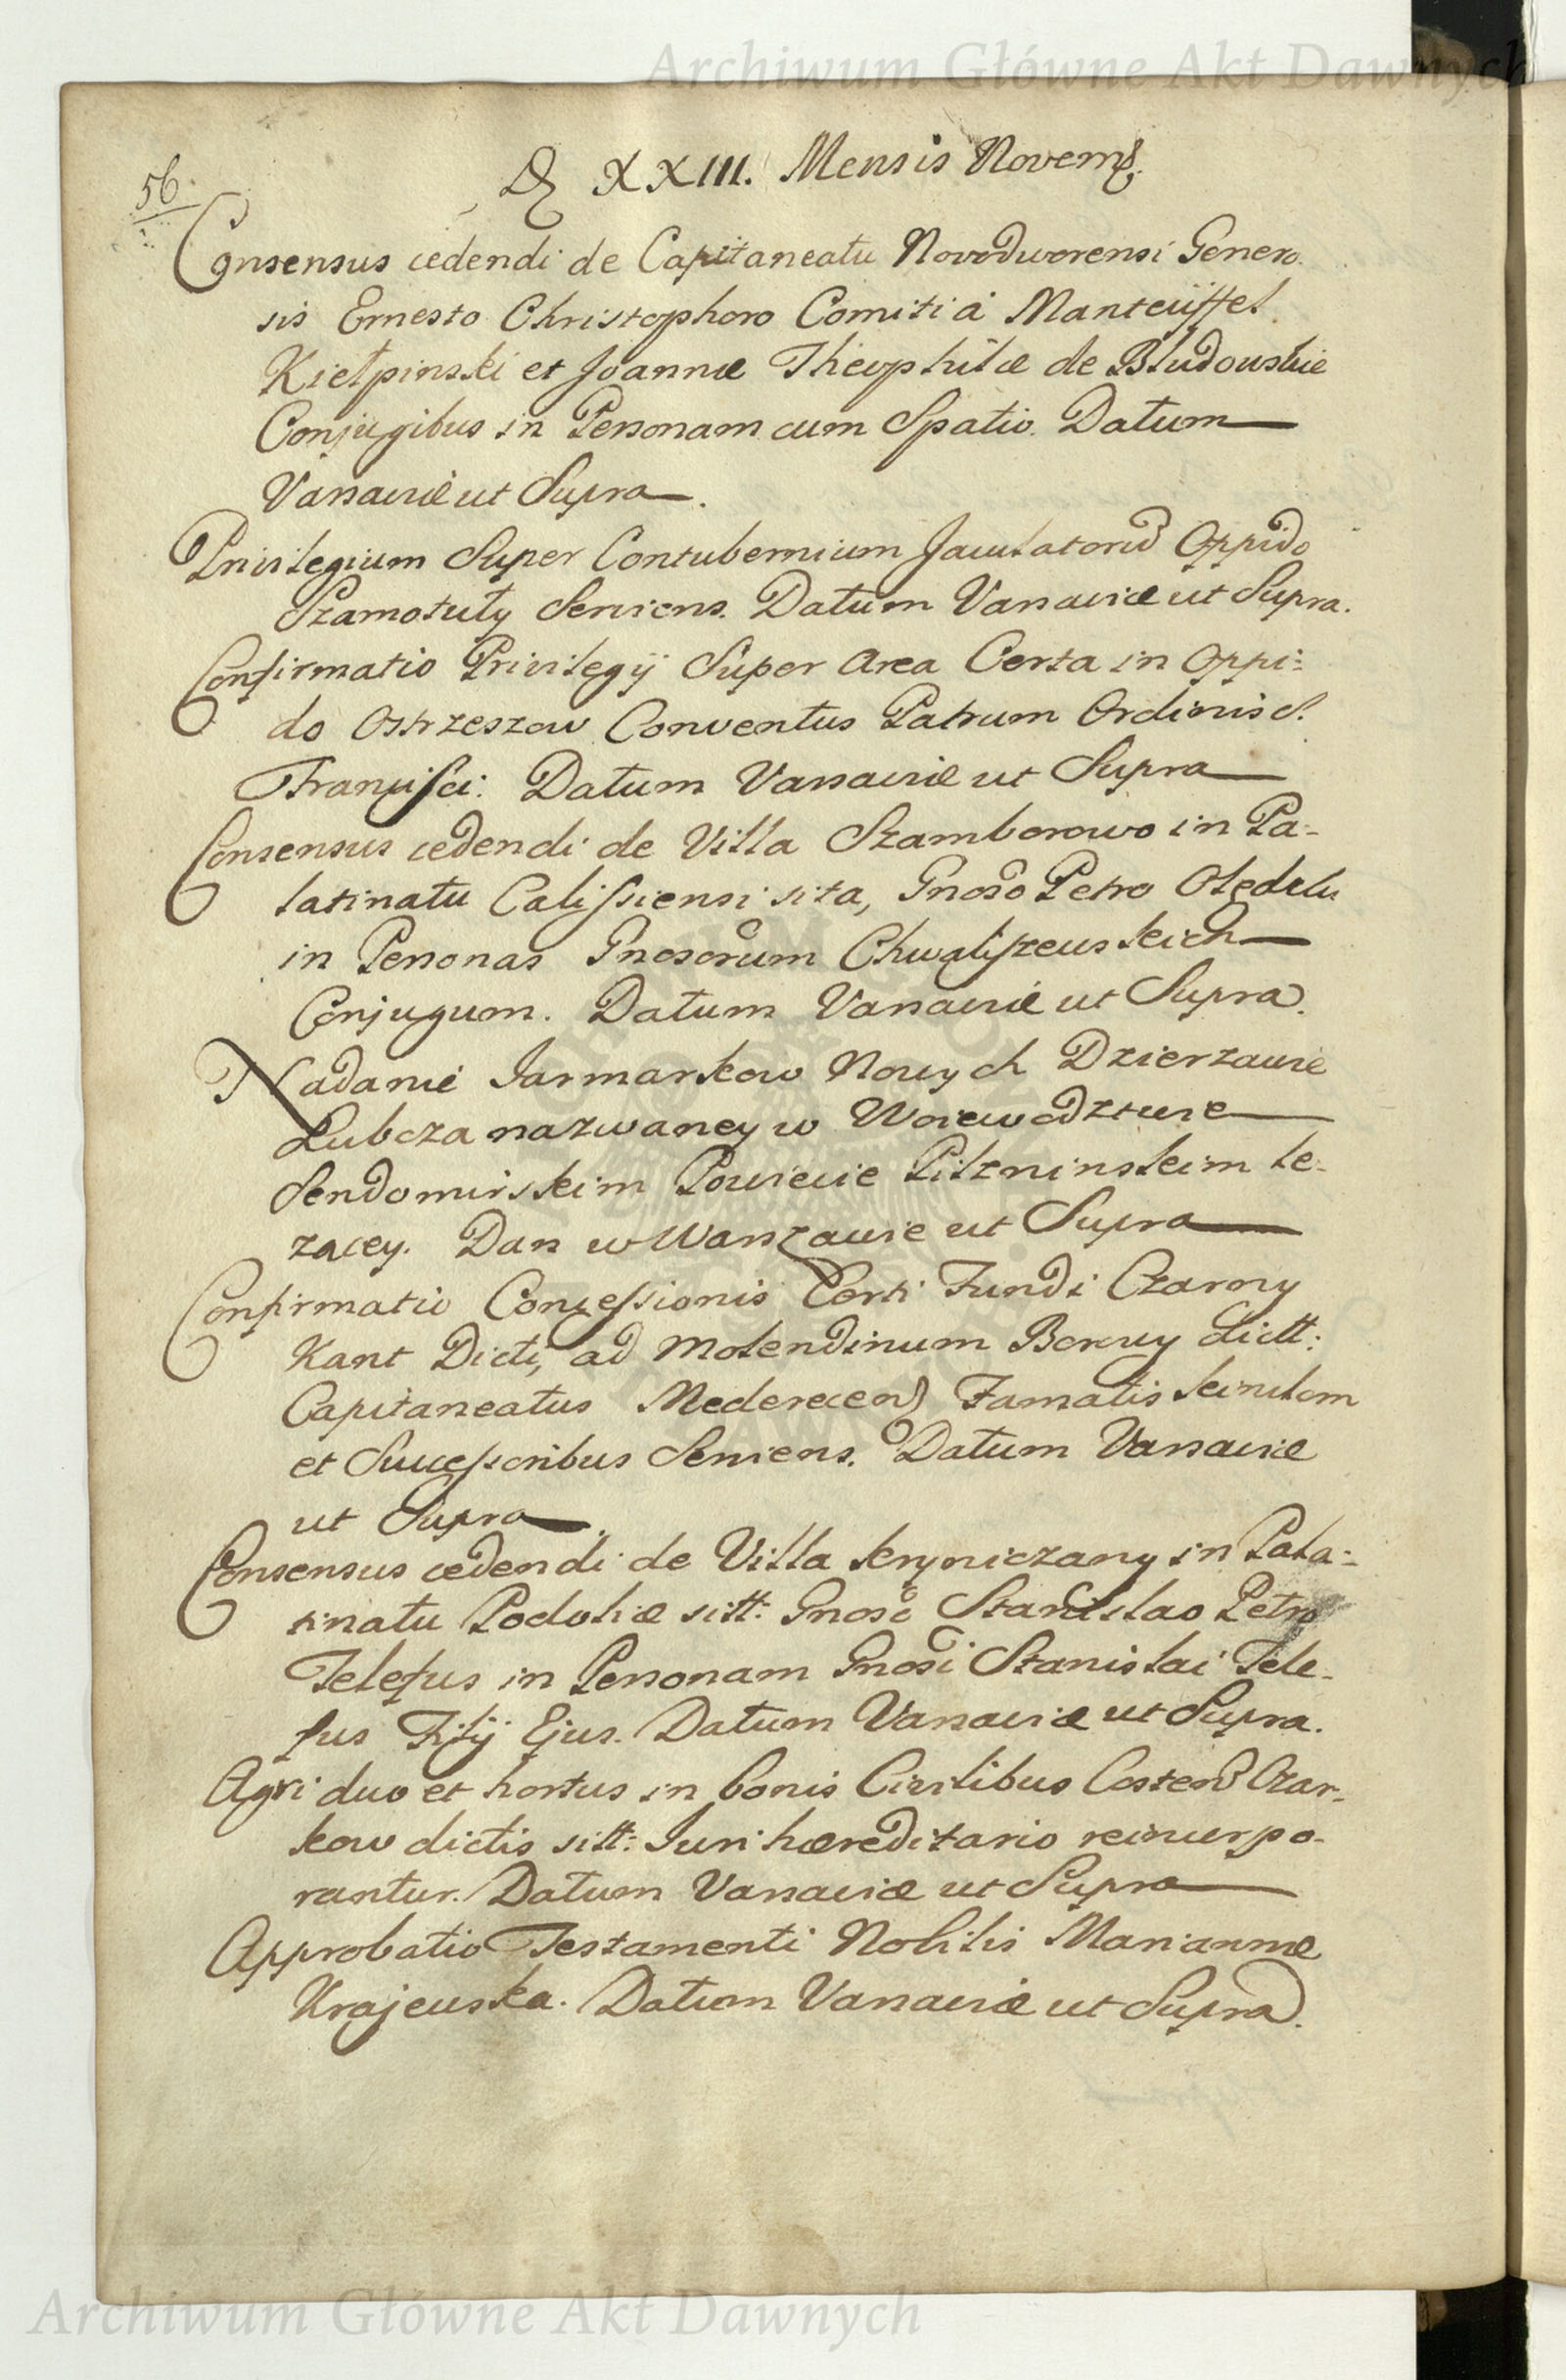 Archiwum Główne Akt Dawnych
56.
D. XXIII. Mensis Novemb.
Consensus cedendi de Capitaneatu Novodworensi Genero
sis Ernesto Christophoro Comiti à Manteüffel
Kiełpinski et Joannæ Theophilæ de Bludowskie
Conjugibus in Personam cum Spatio. Datum
Varsaviæ ut Supra.
Privilegium Super Contubernium Jaculatorũ Oppido
Szamotuły Serviens. Datum Varsaviæ ut Supra.
Confirmatio Privilegij Super Area Certa in Oppi:
do Ostrzeszow Conventus Patrum Ordinis S.
Francisci: Datum Varsaviæ ut Supra
Consensus cedendi de Villa Szamborowo in Pa:
latinatu Calissiensi sita, Gnoso Petro
in Personas Gnosorum Chwaliszewskich
Conjugum. Datum Varsaviæ ut Supra.
Nadanie Jarmarkow Nowych Dzierzawie
Lubcza nazwaney w Woiewodztwie
Sendomirskim Powiecie Pilzninskim le:
zacey. Dan w Warszawie ut Supra
Confirmatio Concessionis Certi Fundi Czarny
Kant Dicti, ad Molendinum Borowy Sitt:
Capitaneatus Mederecens Famatis
et Successoribus Serviens. Datum Varsaviæ
ut Supra.
Consensus cedendi de Villa Kryniczany in Pala:
tinatu Podoliæ sitt: Gnoso Stanislao Petro
Telefus in Personam Gnosi Stanislai Tele:
fus Filij Ejus. Datum Varsaviæ ut Supra.
Agri duo et hortus in bonis Civilibus Costens Czar:
kow dictis sitt: Juri hæreditario reincorpo:
rantur. Datum Varsaviæ ut Supra
Approbatio Testamenti Nobilis Mariannæ
Krajewska. Datum Varsaviæ ut Supra.
Archiwum Główne Akt Dawnych